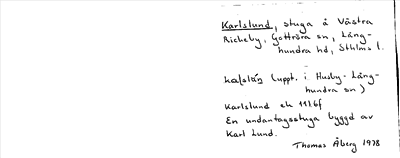 Karlslund, stuga å Västra
Rickeby, Gottröra sn, Lång-
hundra hd, Sthlms l.
(uppt. i Husby-Lång-
hundra sn)
Karlslund ek 11I6f
En undantagsstuga byggd av
Karl Lund.
Thomas Åberg 1978